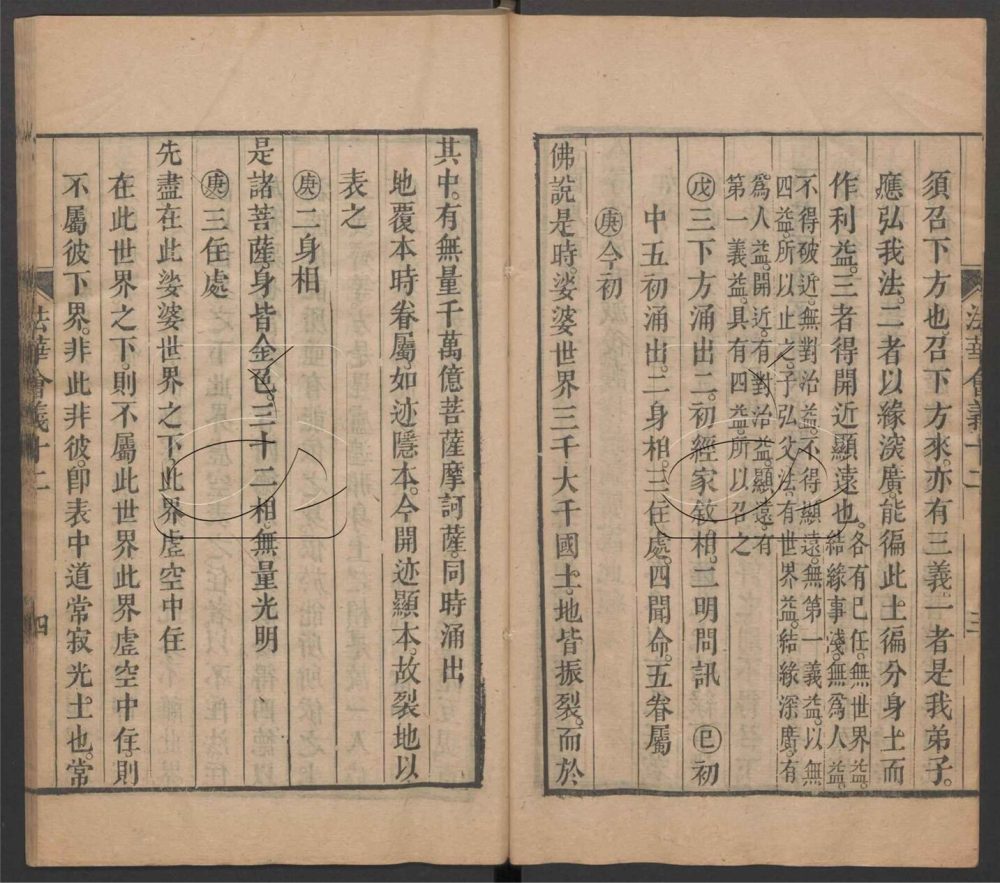 須召下方也。召下方來。亦有三義。一者是我弟子。
應弘我法。二者以緣深廣。能徧此土徧分身土而
作利益。三者得開近顯遠也。各有已任。無世界益。
結緣事淺。無爲人益。
不得破近。無對治益。不得顯遠。無第一義益。以無
四益。所以止之。子弘父法。有世界益。結緣深廣。有
爲人益。開近。有對治益。顯遠。有
第一義益。具有四益。所以召之
㊂下方涌出二。初經家敘相。二明問訊 巳初
中五初涌出。二身相。三住處。四聞命。五眷屬
庚今初
佛說是時。娑婆世界三千大千國土。地皆振裂。而於
法華會義十二 三
其中。有無量千萬億菩薩摩訶薩。同時涌出
地覆本時眷屬。如迹隱本。今開迹顯本。故裂地以
表之
庚二身相
是諸菩薩身皆金色。三十二相。無量光明
庚三住處
先盡在此娑婆世界之下。此界虛空中住
在此世界之下。則不屬此世界此界虛空中住。則
不屬彼下界。非此非彼。卽表中道常寂光土也。常
法華會義十二 四